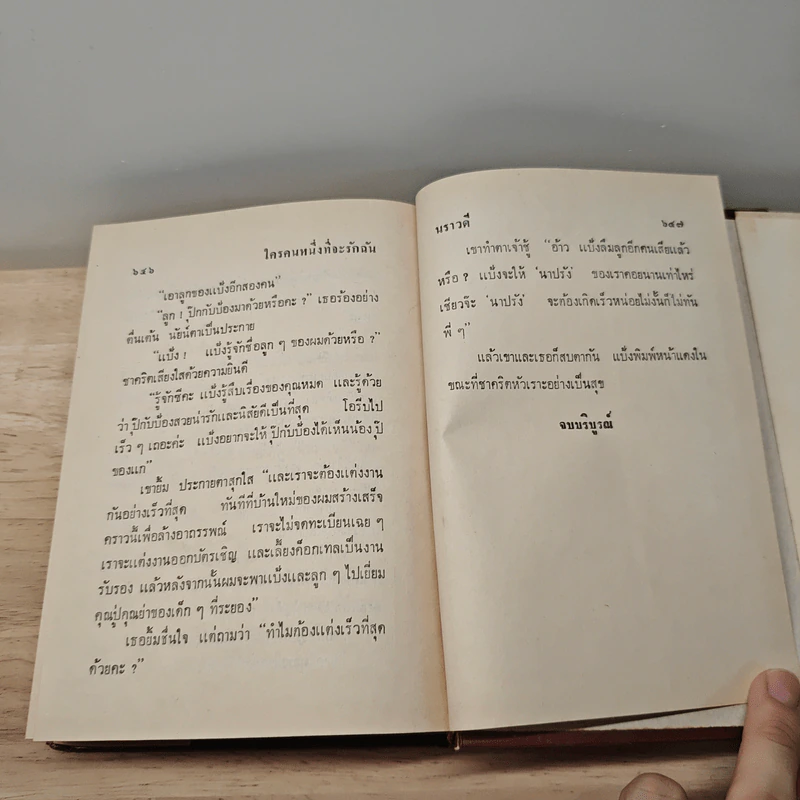 ๖๔๖ ใครคนหนึ่งที่จะรักฉัน
"เอาลูกของแบ็งอีกสองคน"
"ลูก ! ปุ๊กกับบ๊องมาด้วยหรือคะ ?" เธอร้องอย่าง
ตื่นเต้น นัยน์ตาเป็นประกาย
"แบ็ง ! แบ็งรู้จักชื่อลูก ๆ ของผมด้วยหรือ ?"
ชาคริตเสียงใสด้วยความยินดี
"รู้จักซีคะ แบ็งรู้สืบเรื่องของคุณหมด และรู้ด้วย
ว่าปุ๊กกับบ๊องสวยน่ารักและนิสัยดีเป็นที่สุด โอรีบไป
เร็ว ๆ เถอะค่ะ แบ็งอยากจะให้ปุ๊กกับบ๊องได้เห็นน้องปุ๊
ของแก"
เขายิ้ม ประกายตาสุกใส "และเราจะต้องแต่งงาน
กันอย่างเร็วที่สุด ทันทีที่บ้านใหม่ของผมสร้างเสร็จ
คราวนี้เพื่อล้างอาถรรพณ์ เราจะไม่จดทะเบียนเฉย ๆ
เราจะแต่งงานออกบัตรเชิญ และเลี้ยงค็อกเทลเป็นงาน
รับรอง แล้วหลังจากนั้นผมจะพาแบ็งและลูก ๆ ไปเยี่ยม
คุณปู่คุณย่าของเด็ก ๆ ที่ระยอง"
เธอยิ้มชื่นใจ แต่ถามว่า "ทำไมต้องแต่งเร็วที่สุด
ด้วยคะ ?"
นราวดี ๖๔๗
เขาทำตาเจ้าชู้ "อ้าว แบ็งลืมลูกอีกคนเสียแล้ว
หรือ ? แบ็งจะให้ 'นาปรัง' ของเราคอยนานเท่าไหร่
เชียวจ๊ะ 'นาปรัง' จะต้องเกิดเร็วหน่อยไม่งั้นก็ไม่ทัน
พี่ ๆ"
แล้วเขาและเธอก็สบตากัน แบ็งพิมพ์หน้าแดงใน
ขณะที่ชาคริตหัวเราะอย่างเป็นสุข
จบบริบูรณ์